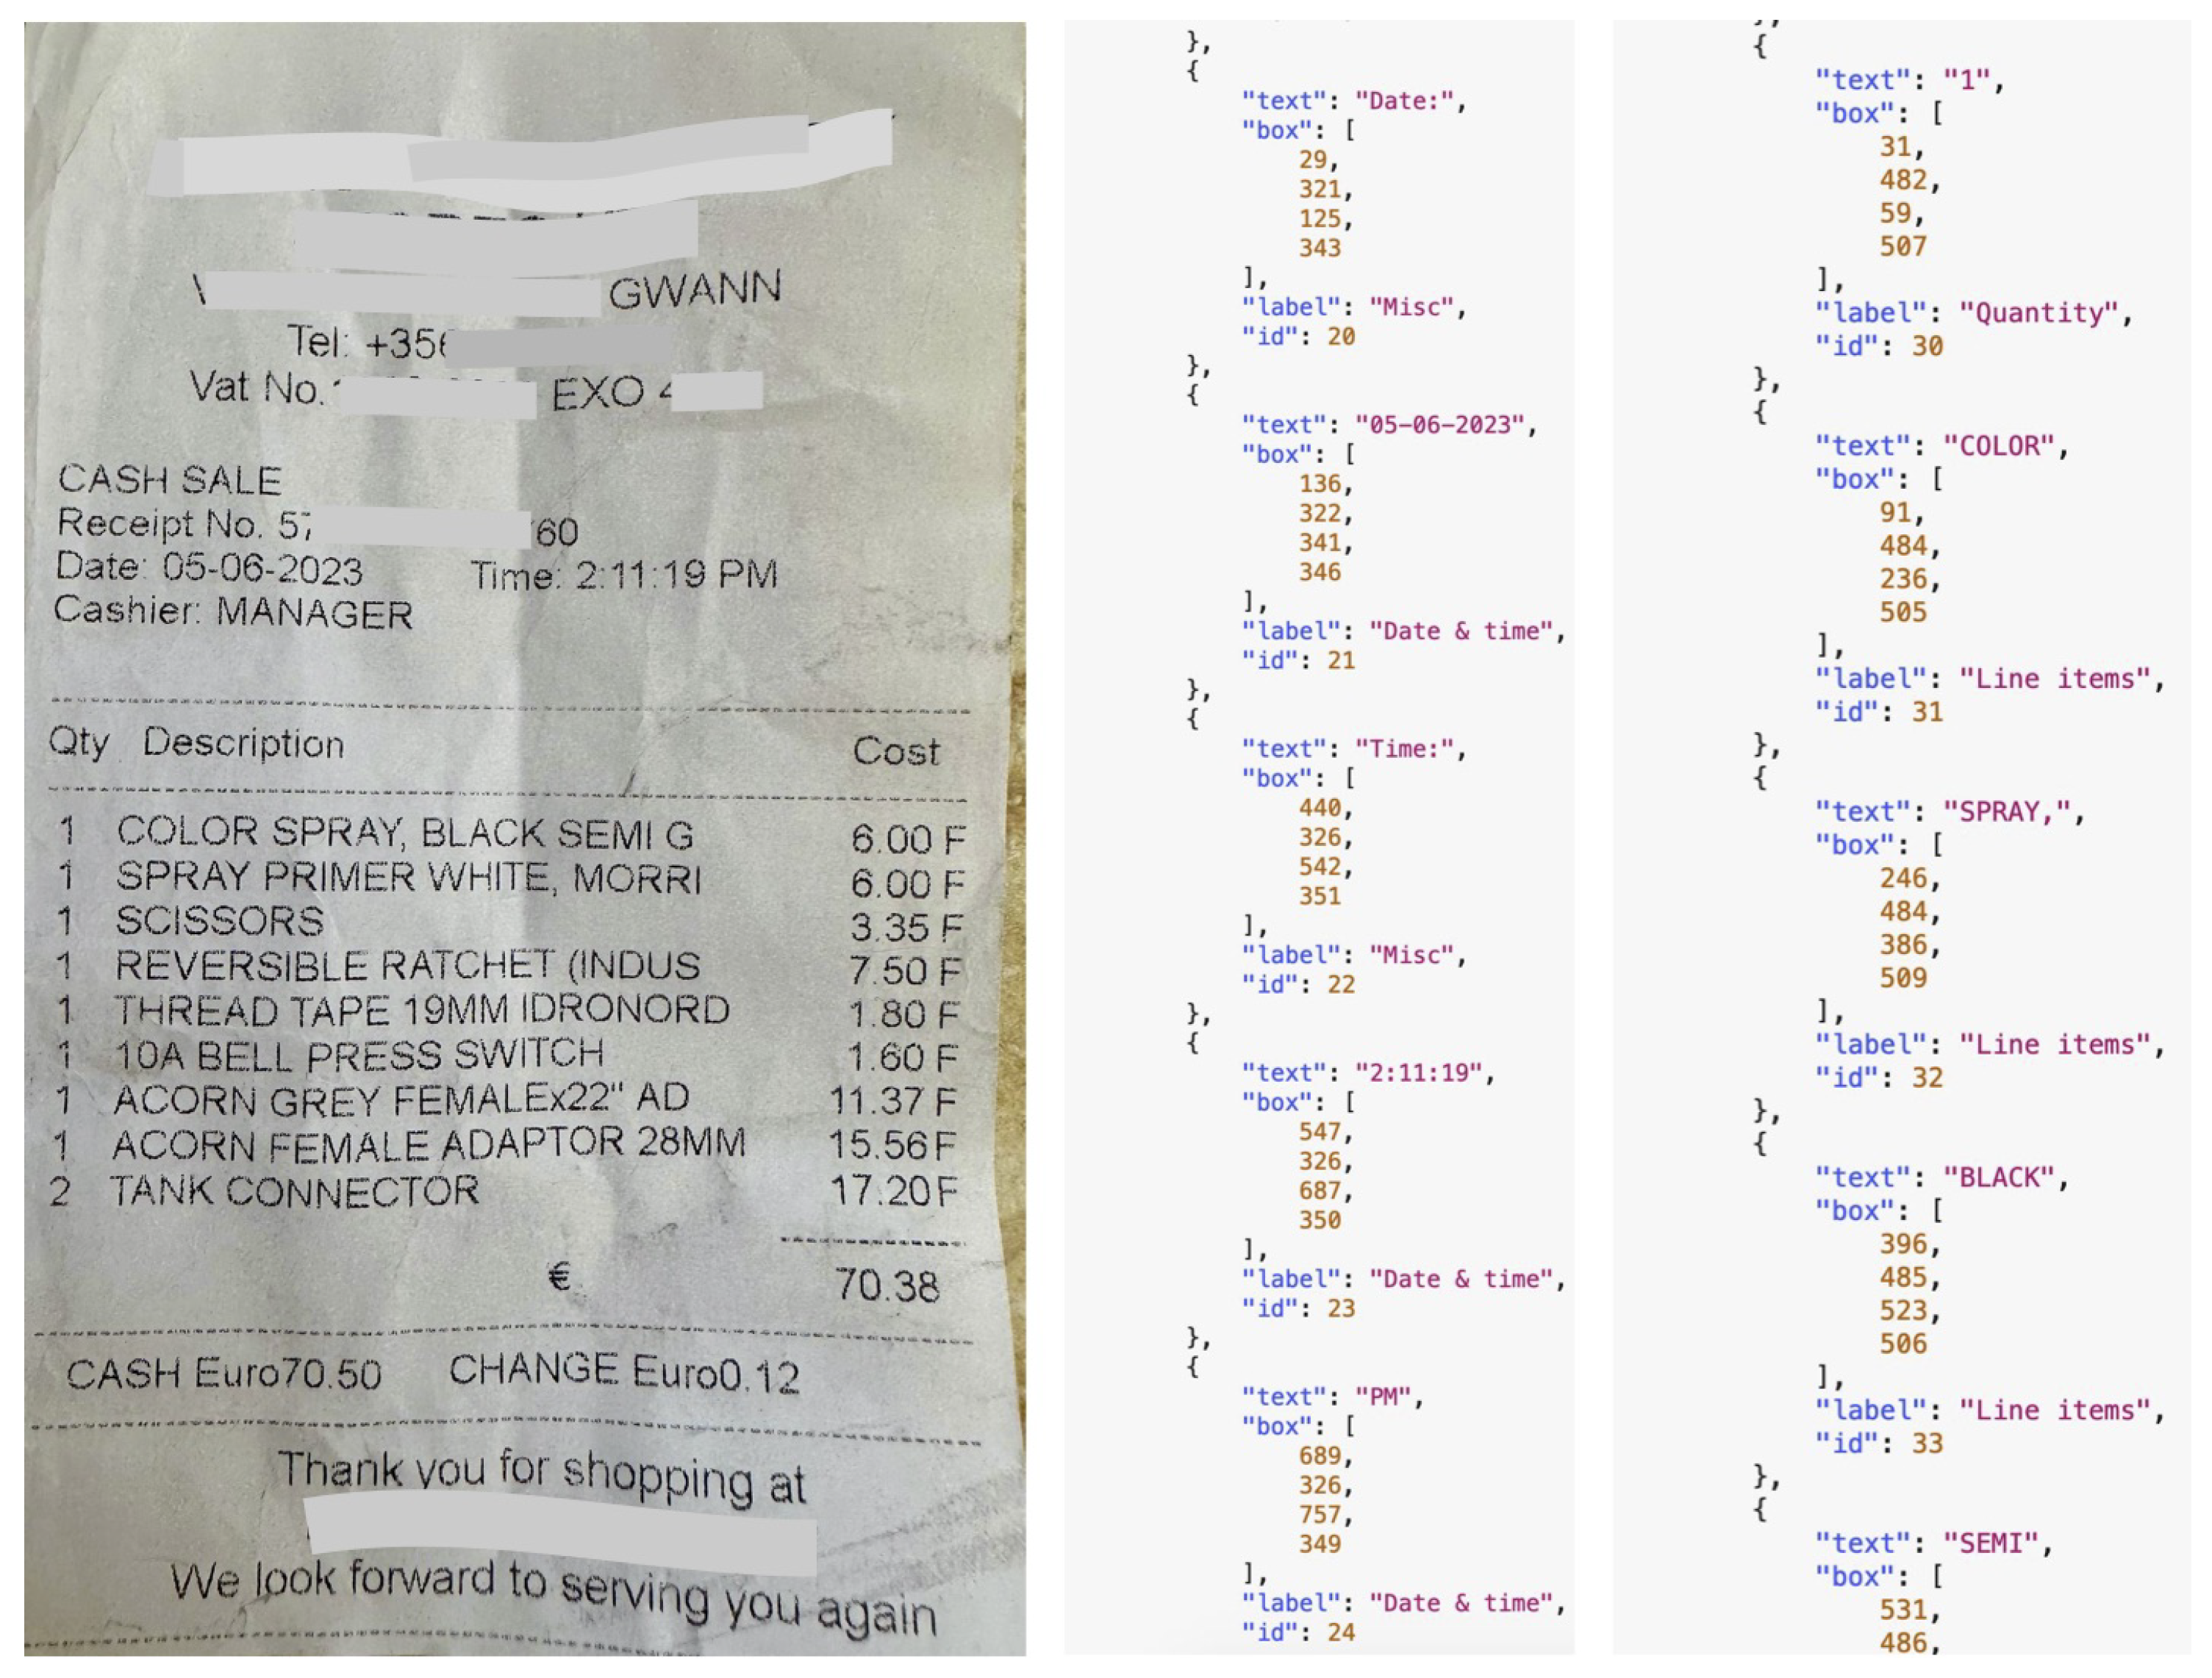 GWANN
Tel: +356
Vat No. EXO 4
CASH SALE
Receipt No. 57 60
Date: 05-06-2023 Time: 2:11:19 PM
Cashier: MANAGER
Qty Description Cost
1 COLOR SPRAY, BLACK SEMI G 6.00 F
1 SPRAY PRIMER WHITE, MORRI 6.00 F
1 SCISSORS 3.35 F
1 REVERSIBLE RATCHET (INDUS 7.50 F
1 THREAD TAPE 19MM IDRONORD 1.80 F
1 10A BELL PRESS SWITCH 1.60 F
1 ACORN GREY FEMALEx22" AD 11.37 F
1 ACORN FEMALE ADAPTOR 28MM 15.56 F
2 TANK CONNECTOR 17.20 F
€ 70.38
CASH Euro70.50 CHANGE Euro0.12
Thank you for shopping at
We look forward to serving you again
},
{
"text": "Date:",
"box": [
29,
321,
125,
343
],
"label": "Misc",
"id": 20
},
{
"text": "05-06-2023",
"box": [
136,
322,
341,
346
],
"label": "Date & time",
"id": 21
},
{
"text": "Time:",
"box": [
440,
326,
542,
351
],
"label": "Misc",
"id": 22
},
{
"text": "2:11:19",
"box": [
547,
326,
687,
350
],
"label": "Date & time",
"id": 23
},
{
"text": "PM",
"box": [
689,
326,
757,
349
],
"label": "Date & time",
"id": 24
{
"text": "1",
"box": [
31,
482,
59,
507
],
"label": "Quantity",
"id": 30
},
{
"text": "COLOR",
"box": [
91,
484,
236,
505
],
"label": "Line items",
"id": 31
},
{
"text": "SPRAY,",
"box": [
246,
484,
386,
509
],
"label": "Line items",
"id": 32
},
{
"text": "BLACK",
"box": [
396,
485,
523,
506
],
"label": "Line items",
"id": 33
},
{
"text": "SEMI",
"box": [
531,
486,